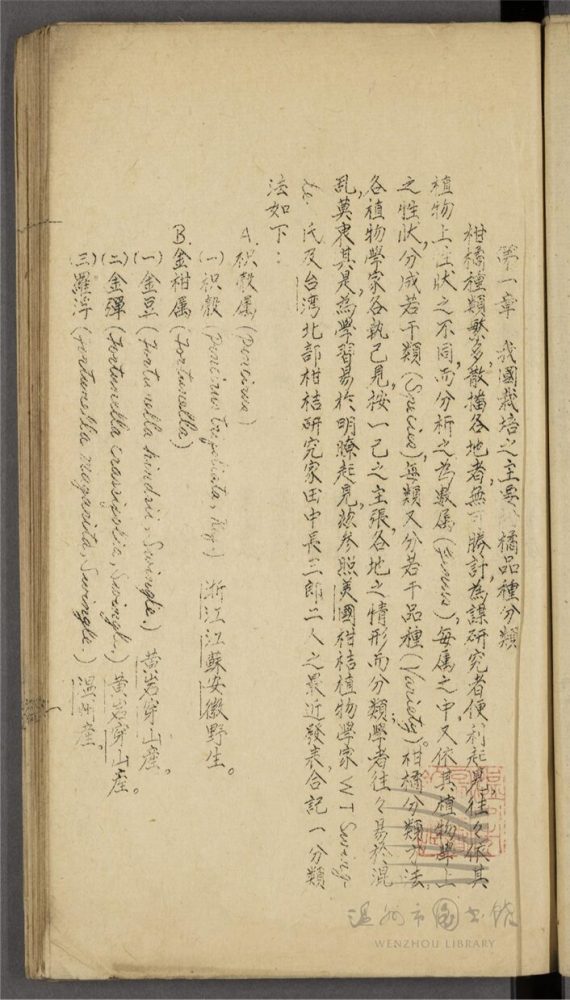 第一章 我國栽培之主要柑橘品種分類
柑橘種類繁多,散播各地者,無可勝計,為謀研究者便利起見,往々依其
植物上性狀之不同,而分析之為數屬(Genus),每屬之中,又依其植物學上
之性狀,分成若干類(Species),每類又分若干品種(Variety)。柑橘分類方法,
各植物學家各執己見,按一己之主張各地之情形而分類,學者往々易於混
亂,莫衷其是,為學習易於明瞭起見,茲參照美國柑桔植物學家 W T Swing-
le. 氏及台湾北部柑桔研究家田中長三郎二人之最近發表,合記一分類
法如下:
A. 枳殼屬 (Poncirus)
(一) 枳殼 (Poncirus trifoliata, Raf.) 浙江江蘇安徽野生。
B. 金柑屬 (Fortunella)
(一) 金豆 (Fortunella hindsii, Swingle.) 黃岩穿山產。
(二) 金彈 (Fortunella crassifolia, Swingle.) 黃岩穿山產。
(三) 羅浮 (Fortunella margarita, Swingle.) 溫州產。
温州市图书馆
WENZHOU LIBRARY